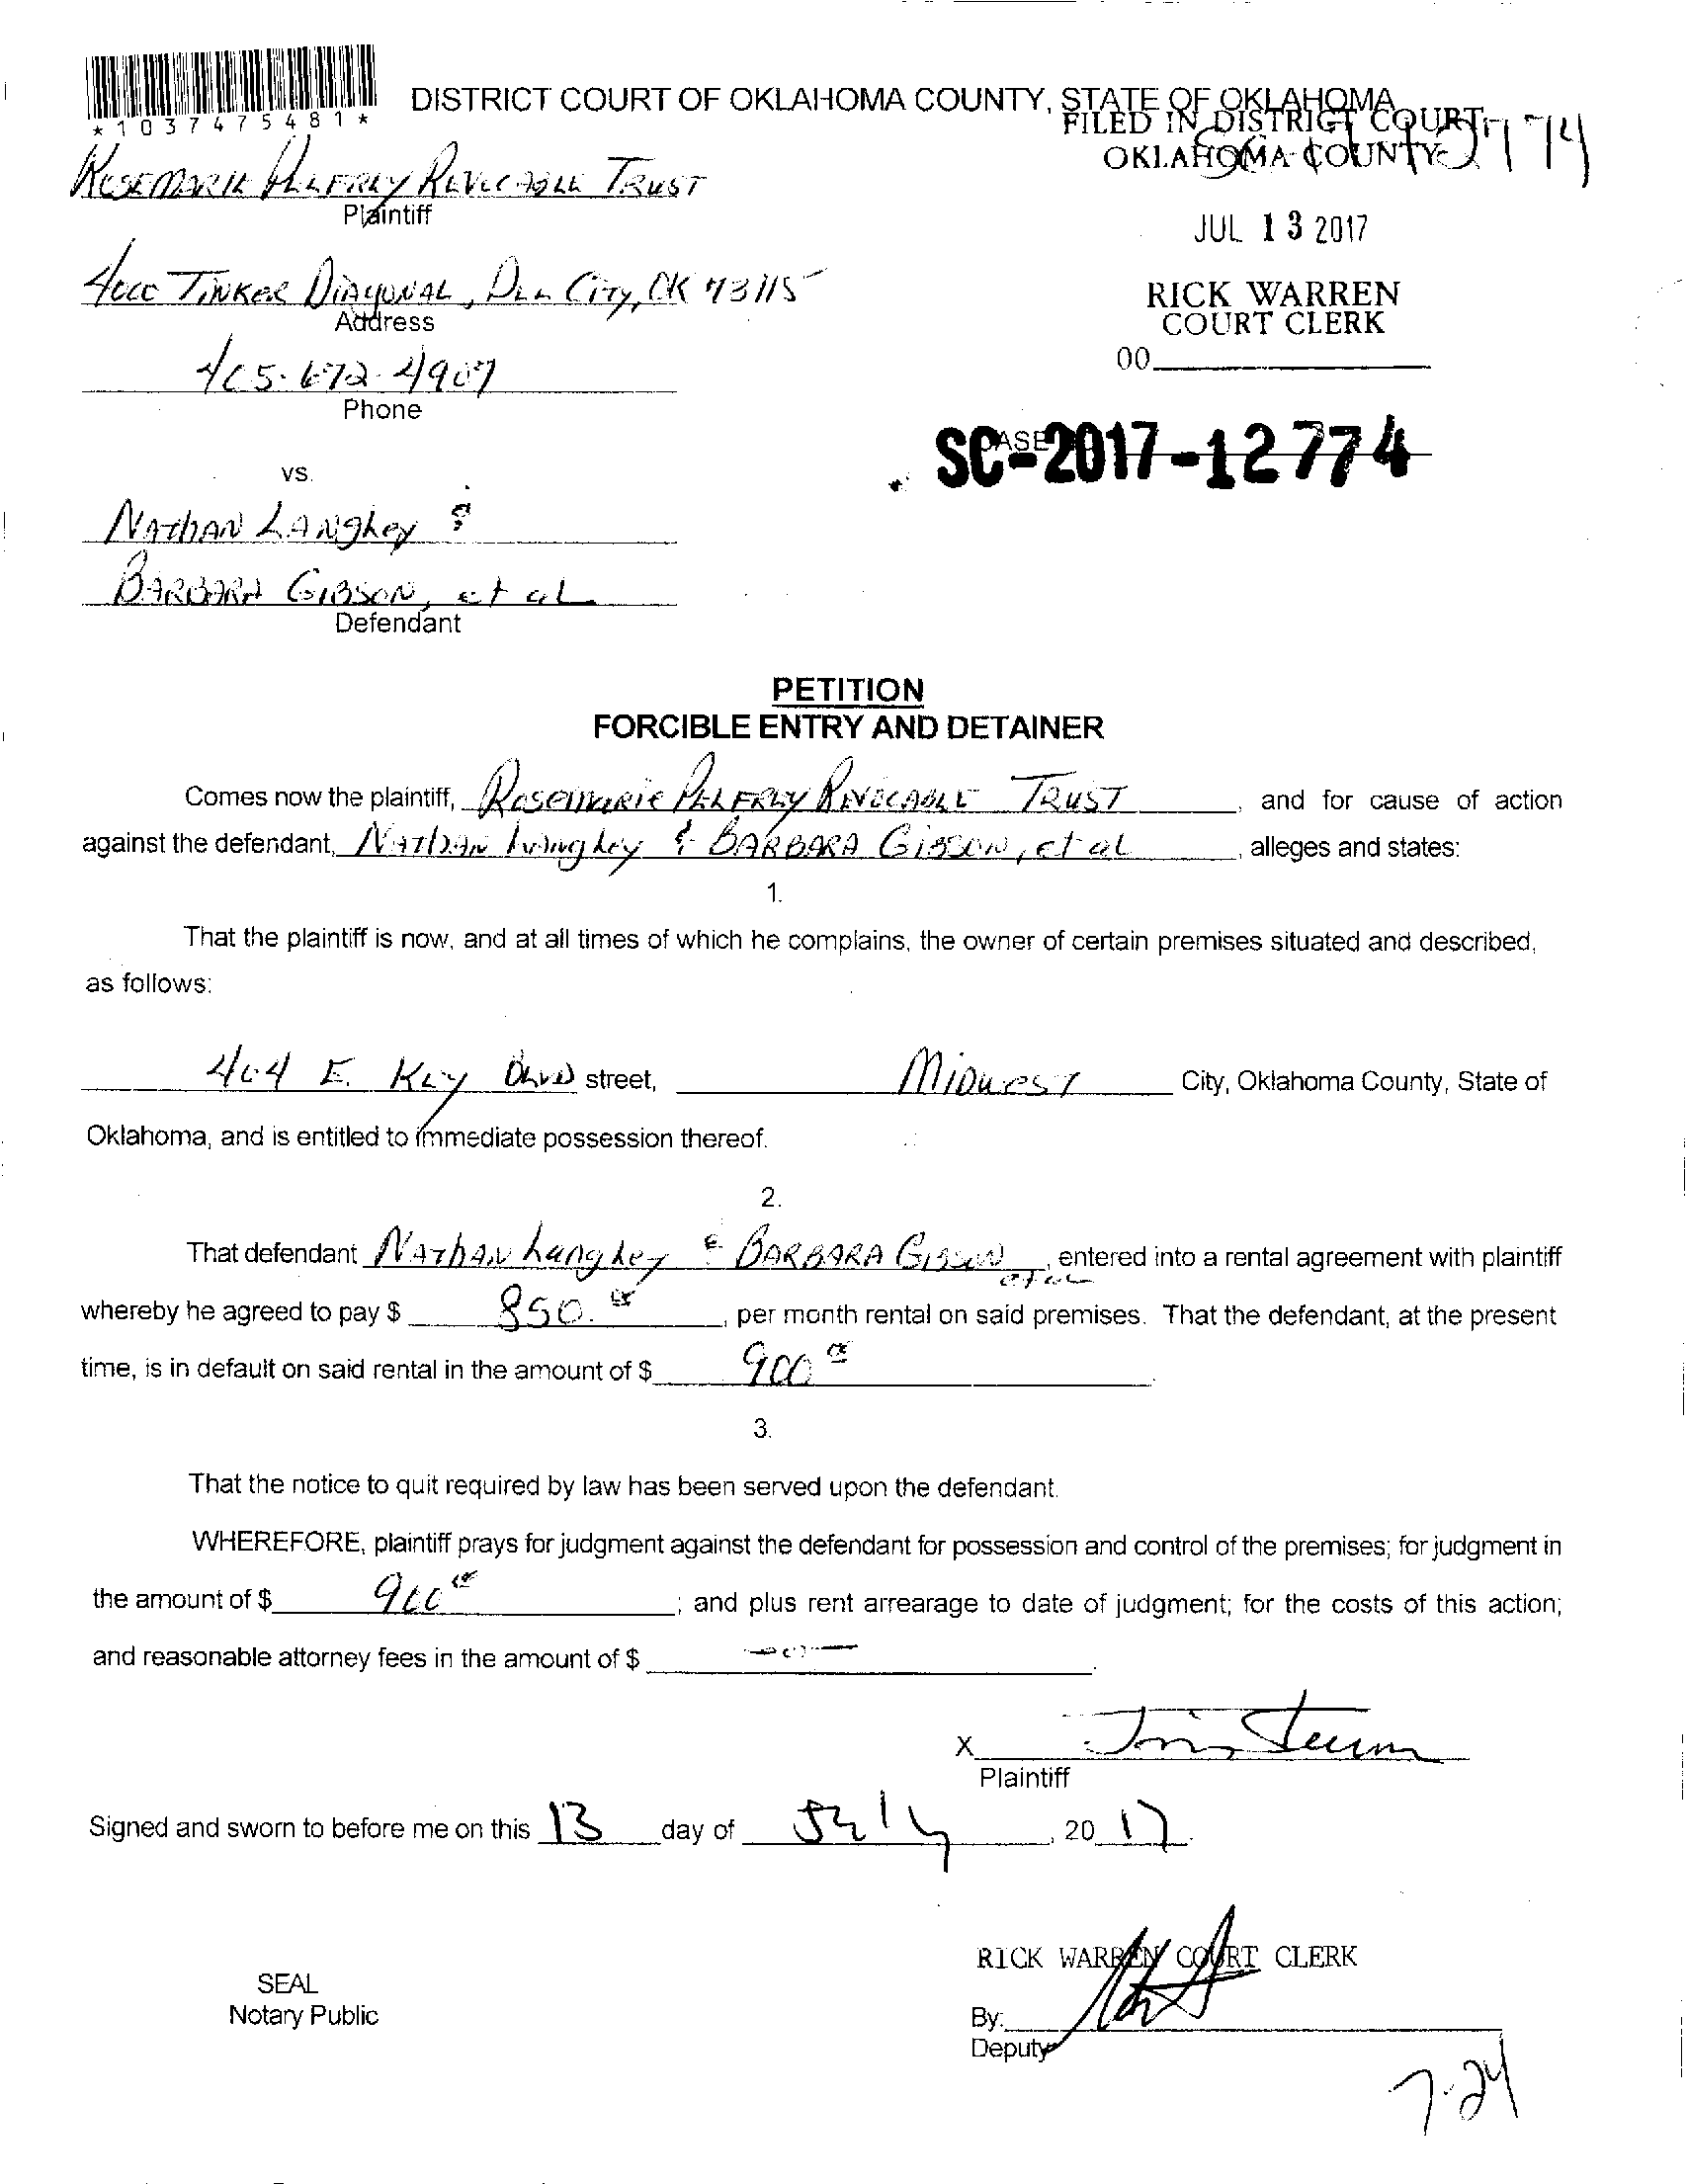 *1037475481*
DISTRICT COURT OF OKLAHOMA COUNTY, STATE OF OKLAHOMA
FILED IN DISTRICT COURT
OKLAHOMA COUNTY
ROSEMARIE PELFREY REVOCABLE TRUST
Plaintiff
JUL 13 2017
4000 TINKER DIAGONAL, DEL CITY, OK 73115
Address
RICK WARREN
COURT CLERK
405-672-4907
Phone
00
SC-2017-12774
vs.
NATHAN LANGLEY &
BARBARA GIBSON, et al
Defendant
PETITION
FORCIBLE ENTRY AND DETAINER
Comes now the plaintiff, Rosemarie PELFREY REVOCABLE TRUST, and for cause of action
against the defendant, NATHAN Langley & BARBARA GIBSON, et al, alleges and states:
1.
That the plaintiff is now, and at all times of which he complains, the owner of certain premises situated and described,
as follows:
404 E. KEY BLVD street, MIDWEST City, Oklahoma County, State of
Oklahoma, and is entitled to immediate possession thereof.
2.
That defendant NATHAN Langley & BARBARA GIBSON et al, entered into a rental agreement with plaintiff
whereby he agreed to pay $ 850.00, per month rental on said premises. That the defendant, at the present
time, is in default on said rental in the amount of $ 900 00.
3.
That the notice to quit required by law has been served upon the defendant.
WHEREFORE, plaintiff prays for judgment against the defendant for possession and control of the premises; for judgment in
the amount of $ 900 00; and plus rent arrearage to date of judgment; for the costs of this action;
and reasonable attorney fees in the amount of $ -0-.
X
Plaintiff
Signed and sworn to before me on this 13 day of July, 2017.
RICK WARREN COURT CLERK
SEAL
Notary Public
By:
Deputy
7-24